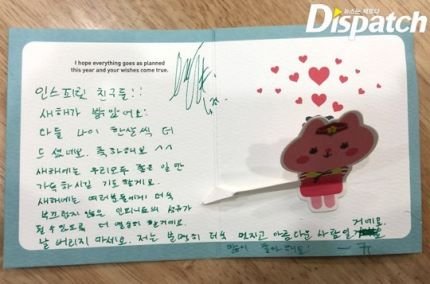 뉴스는 팩트다
Dispatch
I hope everything goes as planned
this year and your wishes come true.
인스피릿 친구들!!
새해가 밝았어요!
다들 나이 한살씩 더
드셨네요. 축하해요 ^^
새해에는 우리모두 좋은 일만
가득하시길 기도할게요.
새해에는 여러분들에게 더욱
부끄럽지 않은 인피니트의 성규가
될 수 있도록 더 열심히 할거에요.
날 버리지 마세요. 저는 분명히 더욱 멋지고 아름다운 사람일 거예요
많이 좋아해요!